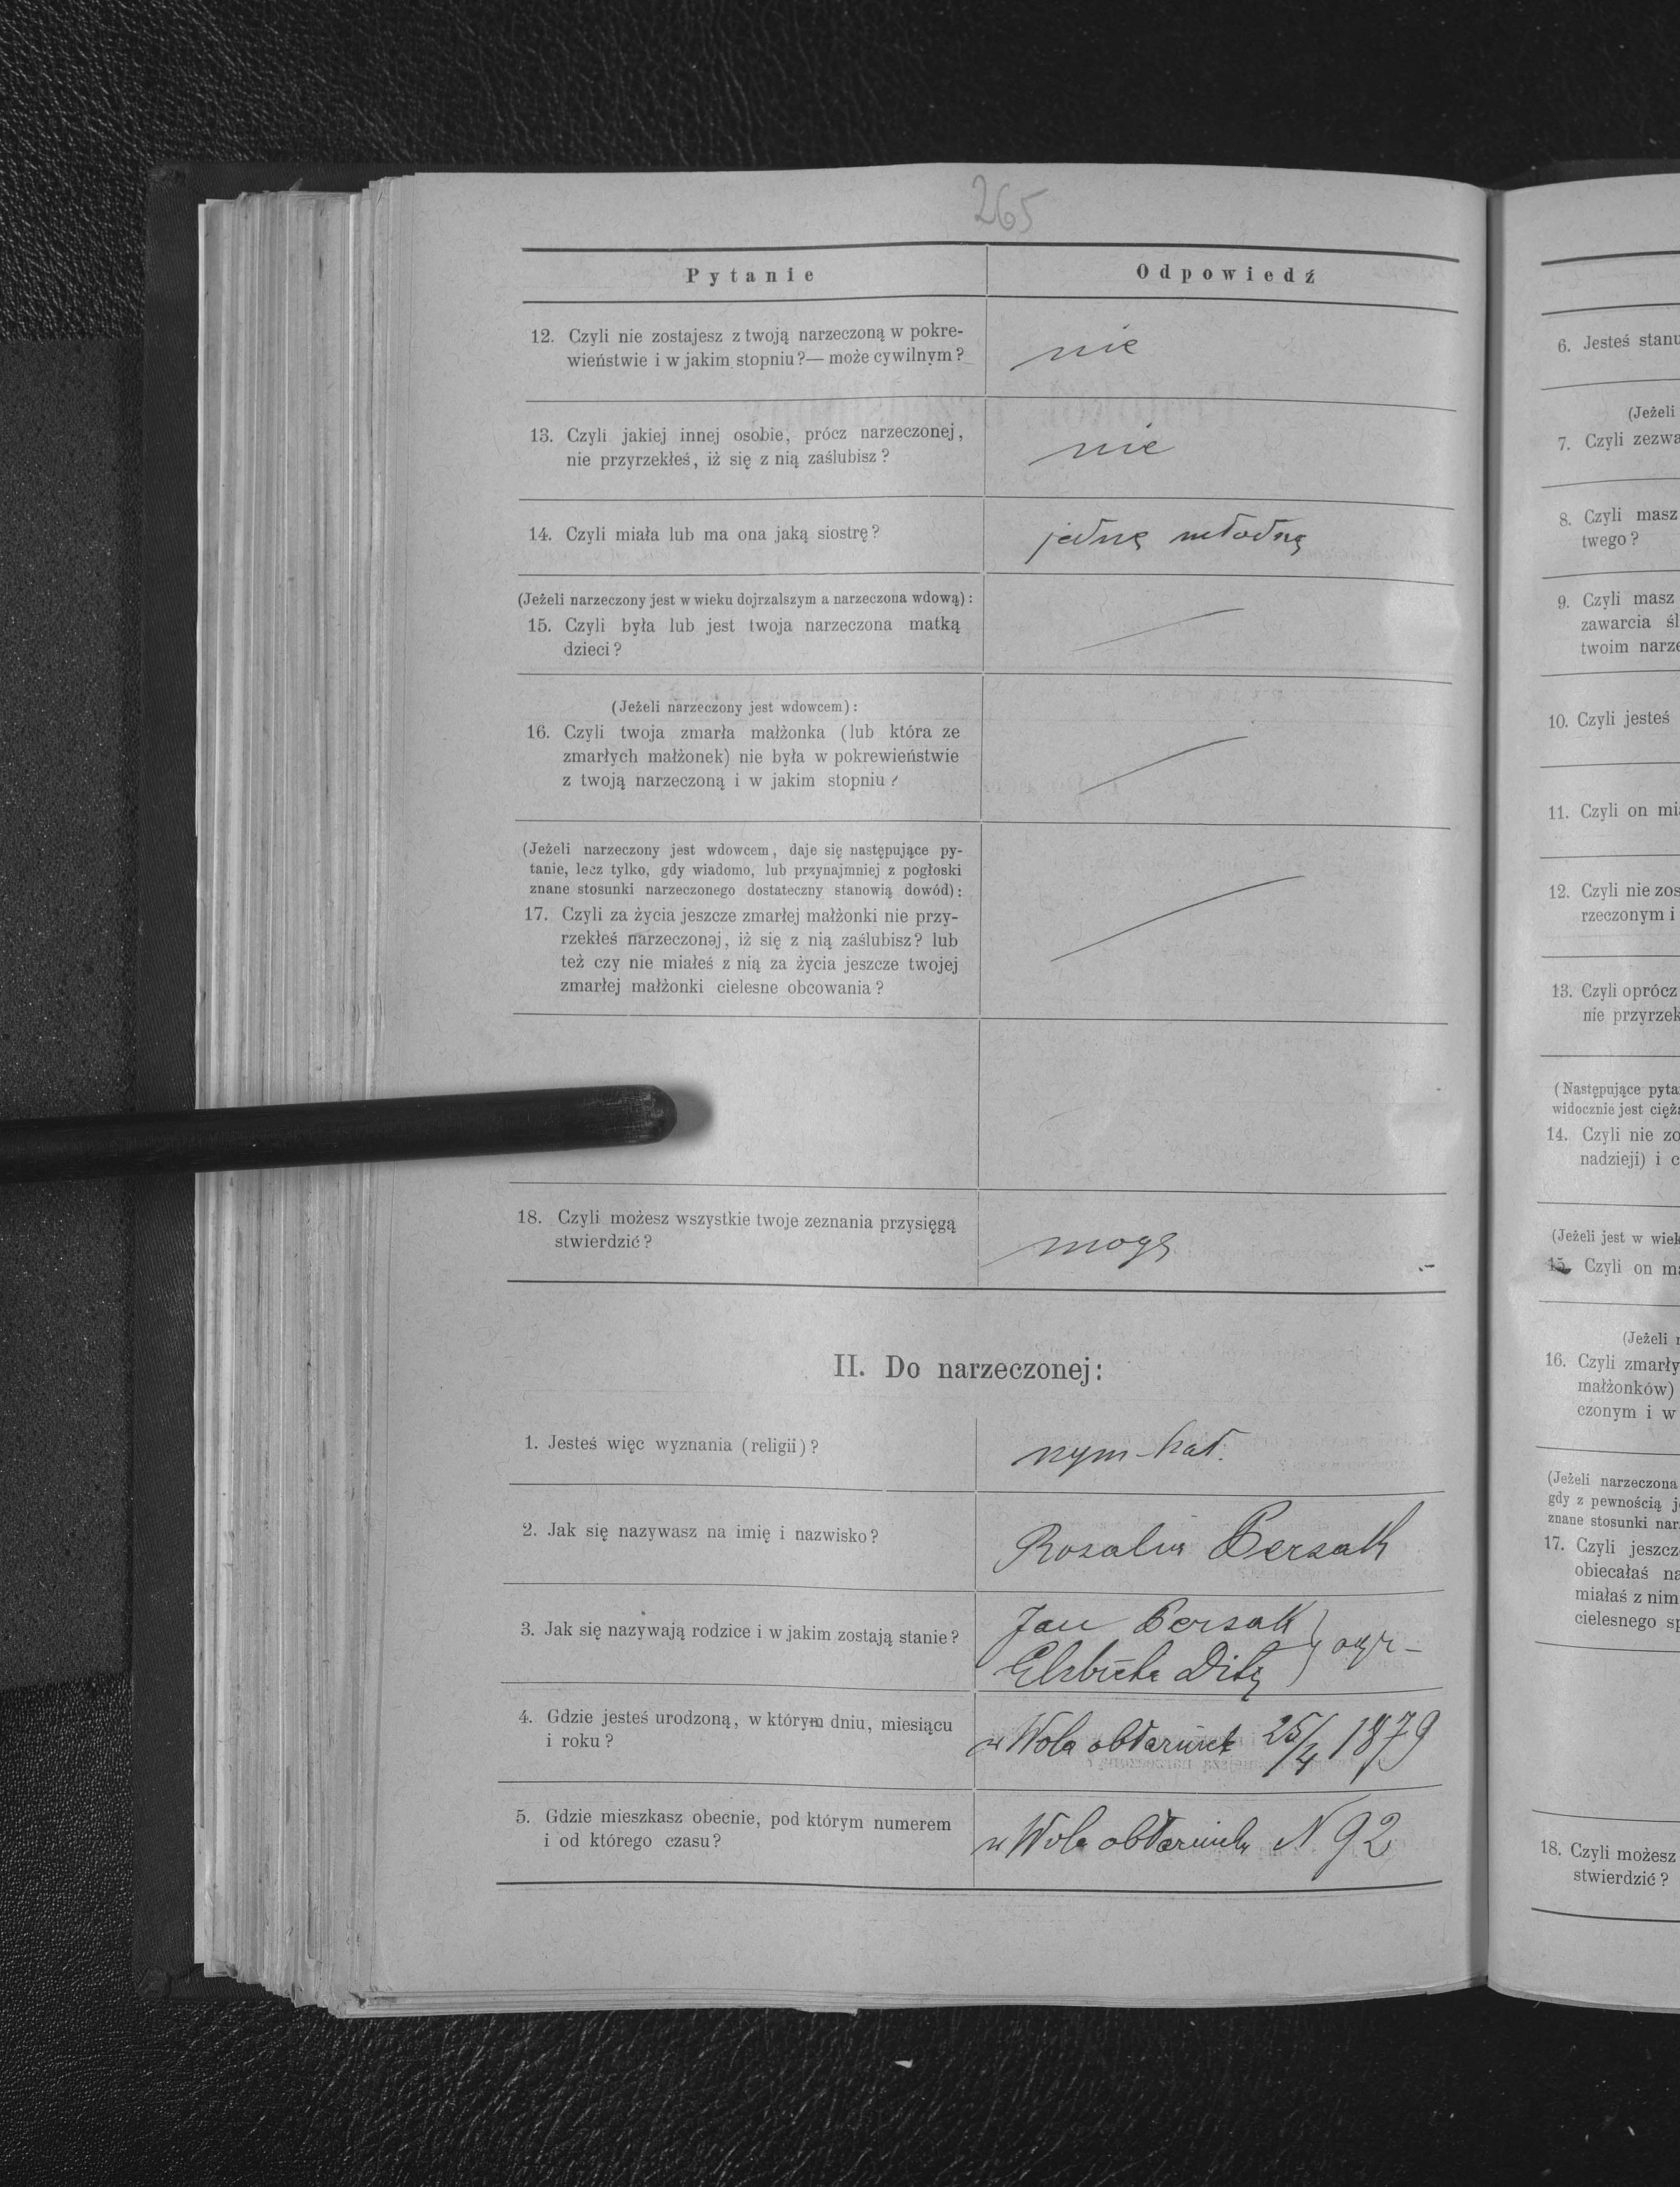 265
Pytanie
Odpowiedź
12. Czyli nie zostajesz z twoją narzeczoną w pokre-
wieństwie i w jakim stopniu?— może cywilnym?
nie
13. Czyli jakiej innej osobie, prócz narzeczonej,
nie przyrzekłeś, iż się z nią zaślubisz?
nie
14. Czyli miała lub ma ona jaką siostrę?
jedną młodną
(Jeżeli narzeczony jest w wieku dojrzalszym a narzeczona wdową):
15. Czyli była lub jest twoja narzeczona matką
dzieci?
(Jeżeli narzeczony jest wdowcem):
16. Czyli twoja zmarła małżonka (lub która ze
zmarłych małżonek) nie była w pokrewieństwie
z twoją narzeczoną i w jakim stopniu?
(Jeżeli narzeczony jest wdowcem, daje się następujące py-
tanie, lecz tylko, gdy wiadomo, lub przynajmniej z pogłoski
znane stosunki narzeczonego dostateczny stanowią dowód):
17. Czyli za życia jeszcze zmarłej małżonki nie przy-
rzekłeś narzeczonej, iż się z nią zaślubisz? lub
też czy nie miałeś z nią za życia jeszcze twojej
zmarłej małżonki cielesne obcowania?
18. Czyli możesz wszystkie twoje zeznania przysięgą
stwierdzić?
mogę
II. Do narzeczonej:
1. Jesteś więc wyznania (religii)?
rzym-kat.
2. Jak się nazywasz na imię i nazwisko?
Rozalia Persak
3. Jak się nazywają rodzice i w jakim zostają stanie?
Jan Persak
Elżbieta
4. Gdzie jesteś urodzoną, w którym dniu, miesiącu
i roku?
w Wola 25/4 1879
5. Gdzie mieszkasz obecnie, pod którym numerem
i od którego czasu?
w Wola N 92
6. Jesteś stanu
(Jeżeli
7. Czyli zezwa
8. Czyli masz
twego?
9. Czyli masz
zawarcia śl
twoim narze
10. Czyli jesteś
11. Czyli on mia
12. Czyli nie zos
rzeczonym i
13. Czyli oprócz
nie przyrzek
(Następujące pyta
widocznie jest cięża
14. Czyli nie zo
nadzieji) i c
(Jeżeli jest w wiek
15. Czyli on ma
(Jeżeli n
16. Czyli zmarły
małżonków)
czonym i w
(Jeżeli narzeczona
gdy z pewnością j
znane stosunki nar
17. Czyli jeszcz
obiecałaś na
miałaś z nim
cielesnego sp
18. Czyli możesz
stwierdzić?